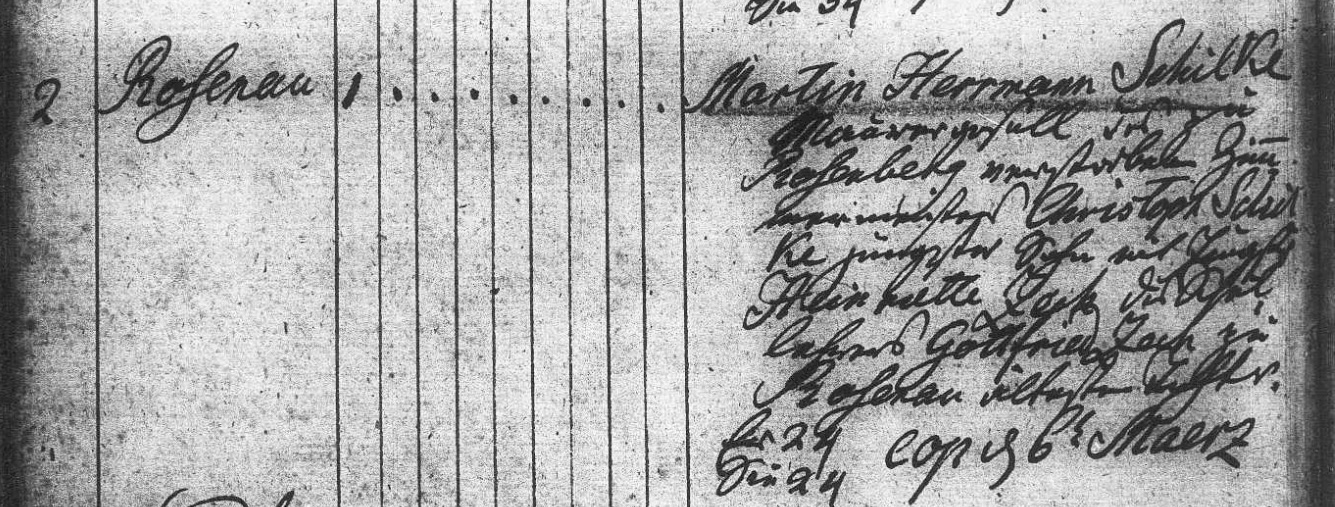 Sie 34
2 Rosenau 1 . . . . . . . . Martin Herrmann Schilke
Maurergesell des zu
Rosenberg verstorbenen Zim-
mermeisters Christoph Schil
ke jüngster Sohn mit Jungfr
Heinriette Zech des Schul
lehrers Gottfried Zech zu
Rosenau älteste Tochter.
Er 24 cop d 6t Maerz
Sie 24